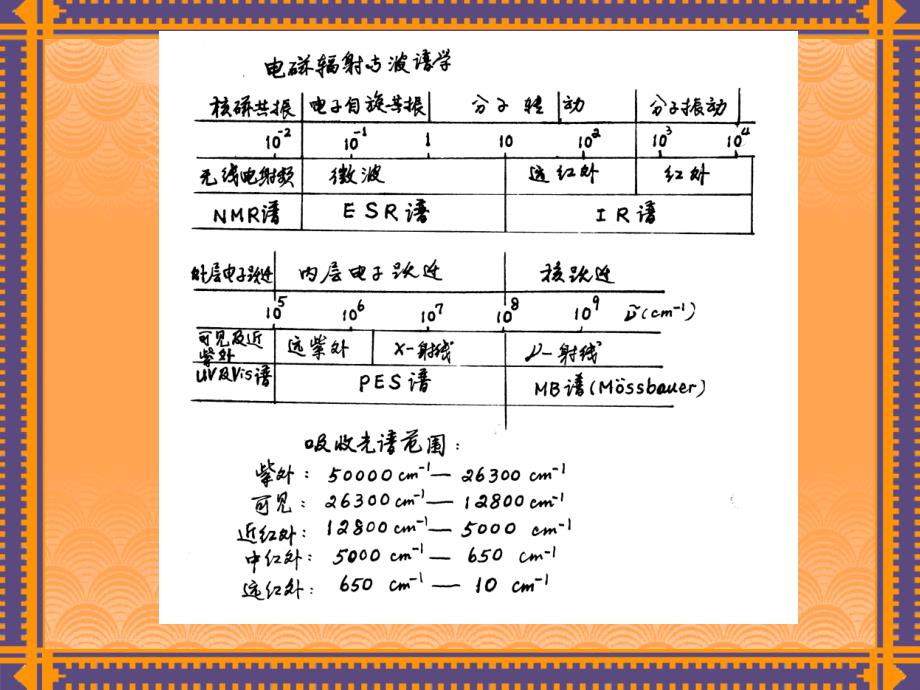 电磁辐射与波谱学
核磁共振 电子自旋共振 分子转动 分子振动
10⁻² 10⁻¹ 1 10 10² 10³ 10⁴
无线电射频 微波 远红外 红外
NMR谱 ESR谱 IR谱
外层电子跃迁 内层电子跃迁 核跃迁
10⁵ 10⁶ 10⁷ 10⁸ 10⁹ ν̃(cm⁻¹)
可见及近紫外 远紫外 X-射线 γ-射线
UV及Vis谱 PES谱 MB谱(Mössbauer)
吸收光谱范围:
紫外: 50000 cm⁻¹ — 26300 cm⁻¹
可见: 26300 cm⁻¹ — 12800 cm⁻¹
近红外: 12800 cm⁻¹ — 5000 cm⁻¹
中红外: 5000 cm⁻¹ — 650 cm⁻¹
远红外: 650 cm⁻¹ — 10 cm⁻¹